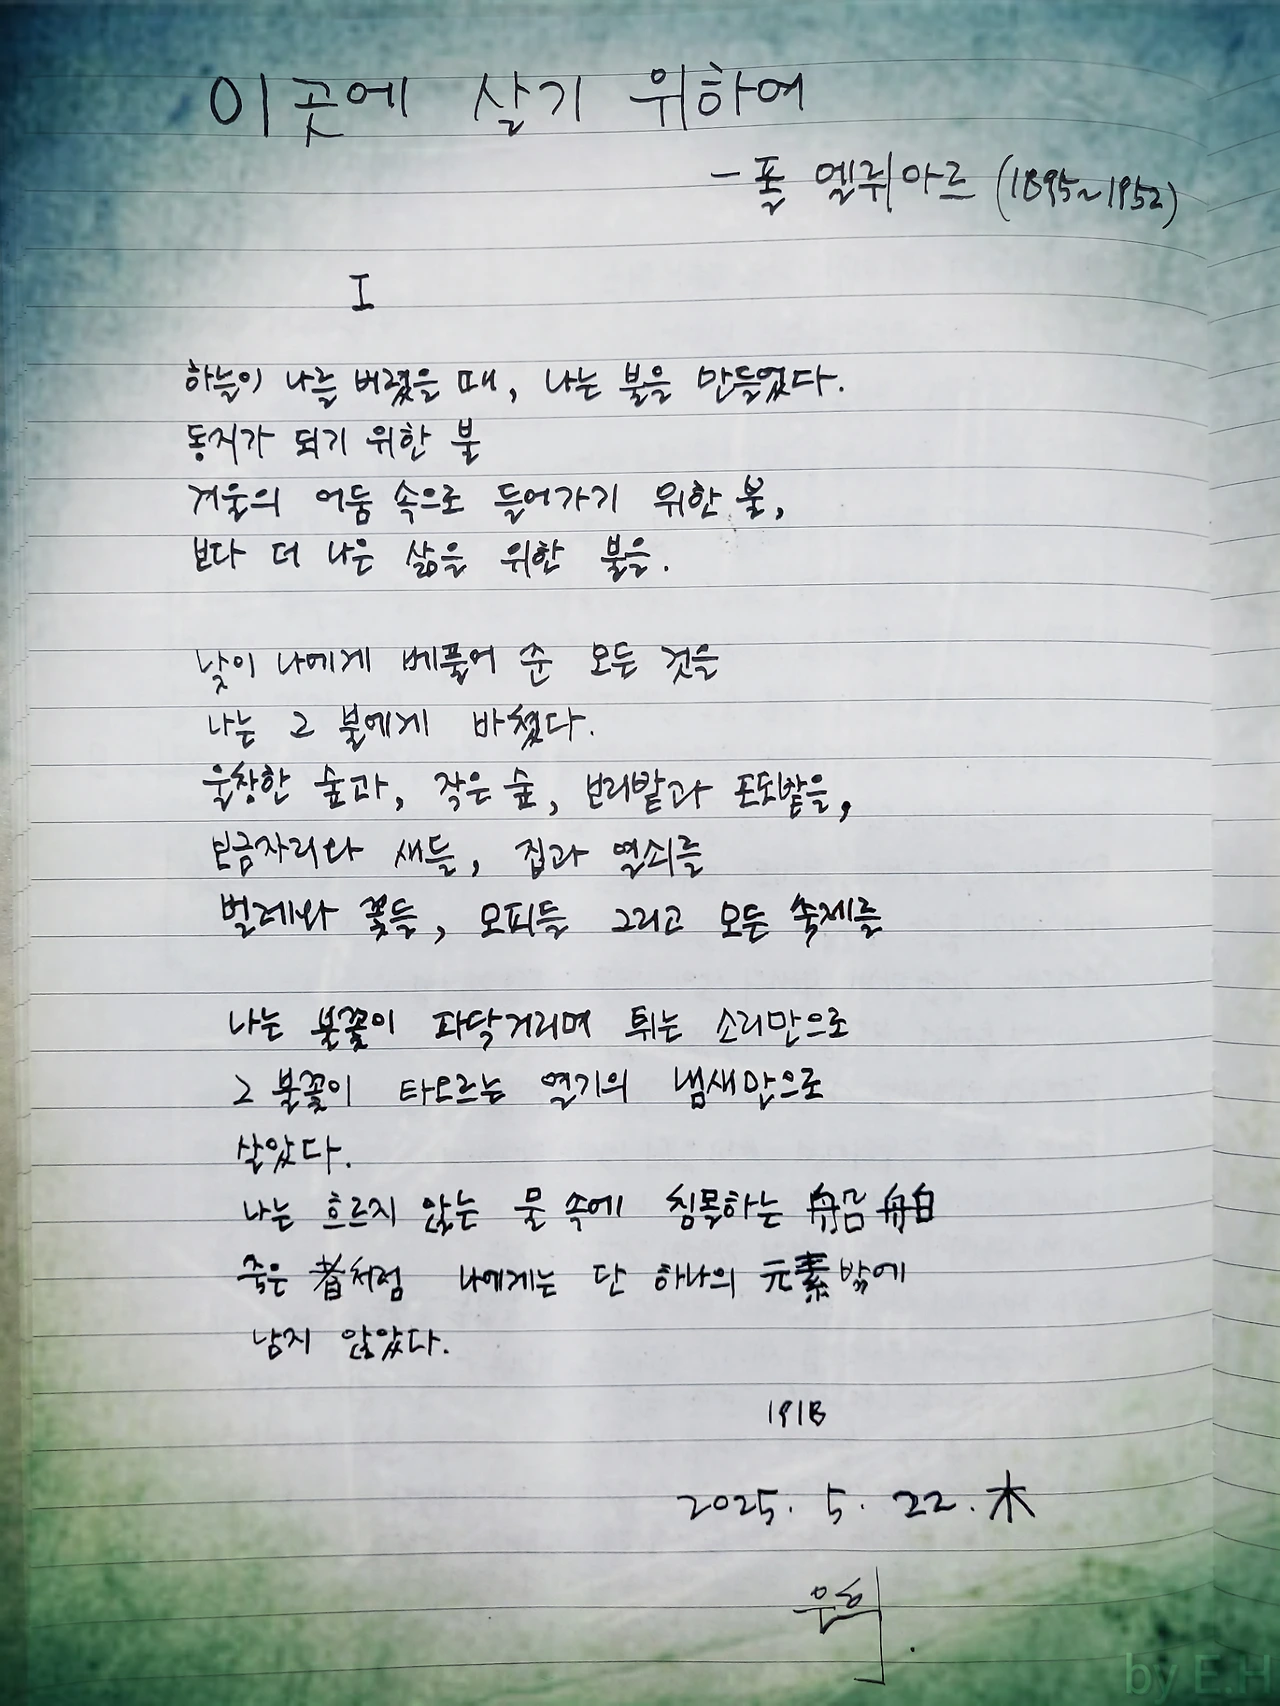 이곳에 살기 위하여
- 폴 엘뤼아르 (1895~1952)
I
하늘이 나를 버렸을 때, 나는 불을 만들었다.
동지가 되기 위한 불
겨울의 어둠 속으로 들어가기 위한 불,
보다 더 나은 삶을 위한 불을.
낮이 나에게 베풀어 준 모든 것을
나는 그 불에게 바쳤다.
울창한 숲과, 작은 숲, 보리밭과 포도밭을,
보금자리와 새들, 집과 열쇠를
벌레와 꽃들, 모피들 그리고 모든 축제를
나는 불꽃이 파닥거리며 튀는 소리만으로
그 불꽃이 타오르는 열기의 냄새만으로
살았다.
나는 흐르지 않는 물 속에 침몰하는 船舶
죽은 者처럼 나에게는 단 하나의 元素밖에
남지 않았다.
1918
2025. 5. 22. 木
은희
by E.H